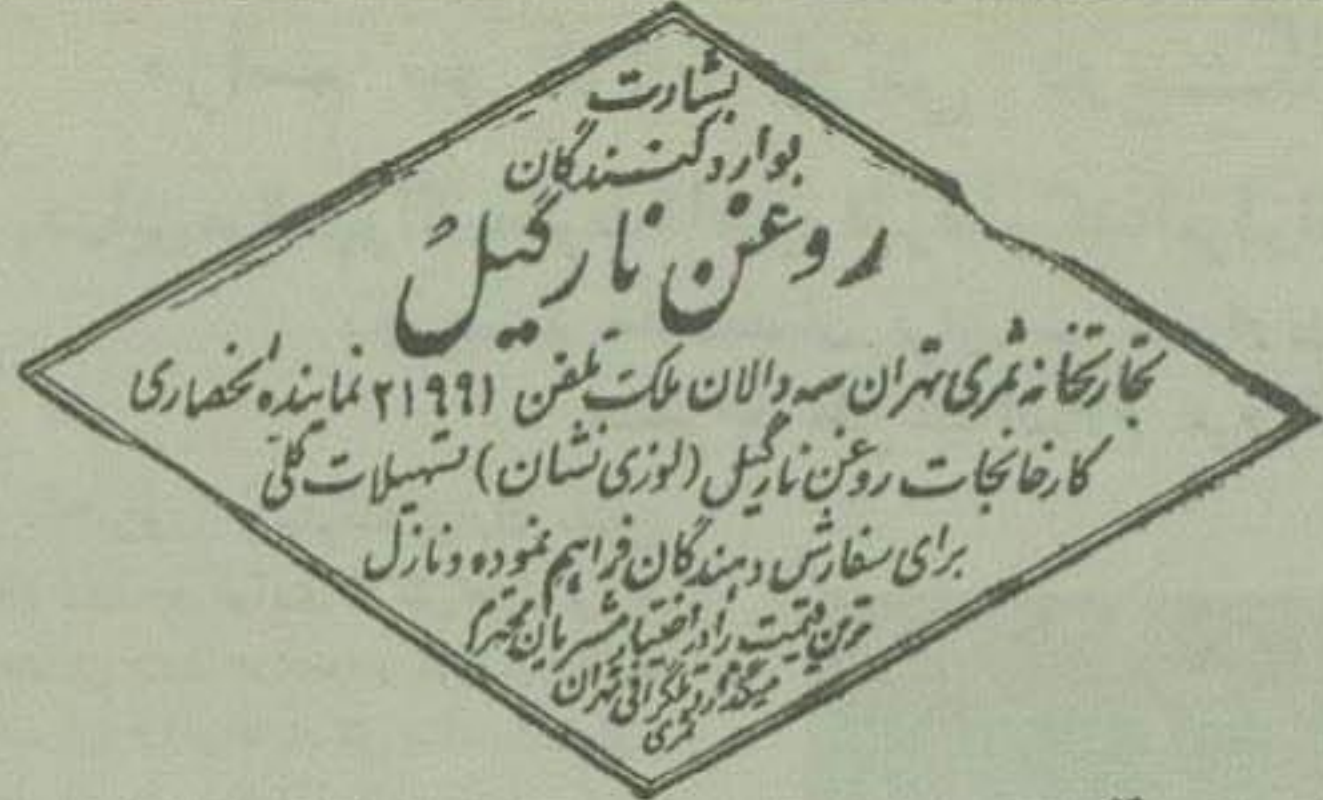 بشارت
بوارد کنندگان
روغن نارگیل
تجارتخانه ثمری تهران سه والان ملک تلفن ۲۱۹۹۱ نماینده انحصاری
کارخانجات روغن نارگیل (لوزی نشان) تسهیلات کلی
برای سفارش دهندگان فراهم نموده و نازل
ترین قیمت را در اختیار مشتریان محترم
میگذارد تلگرافی تهران
ثمری